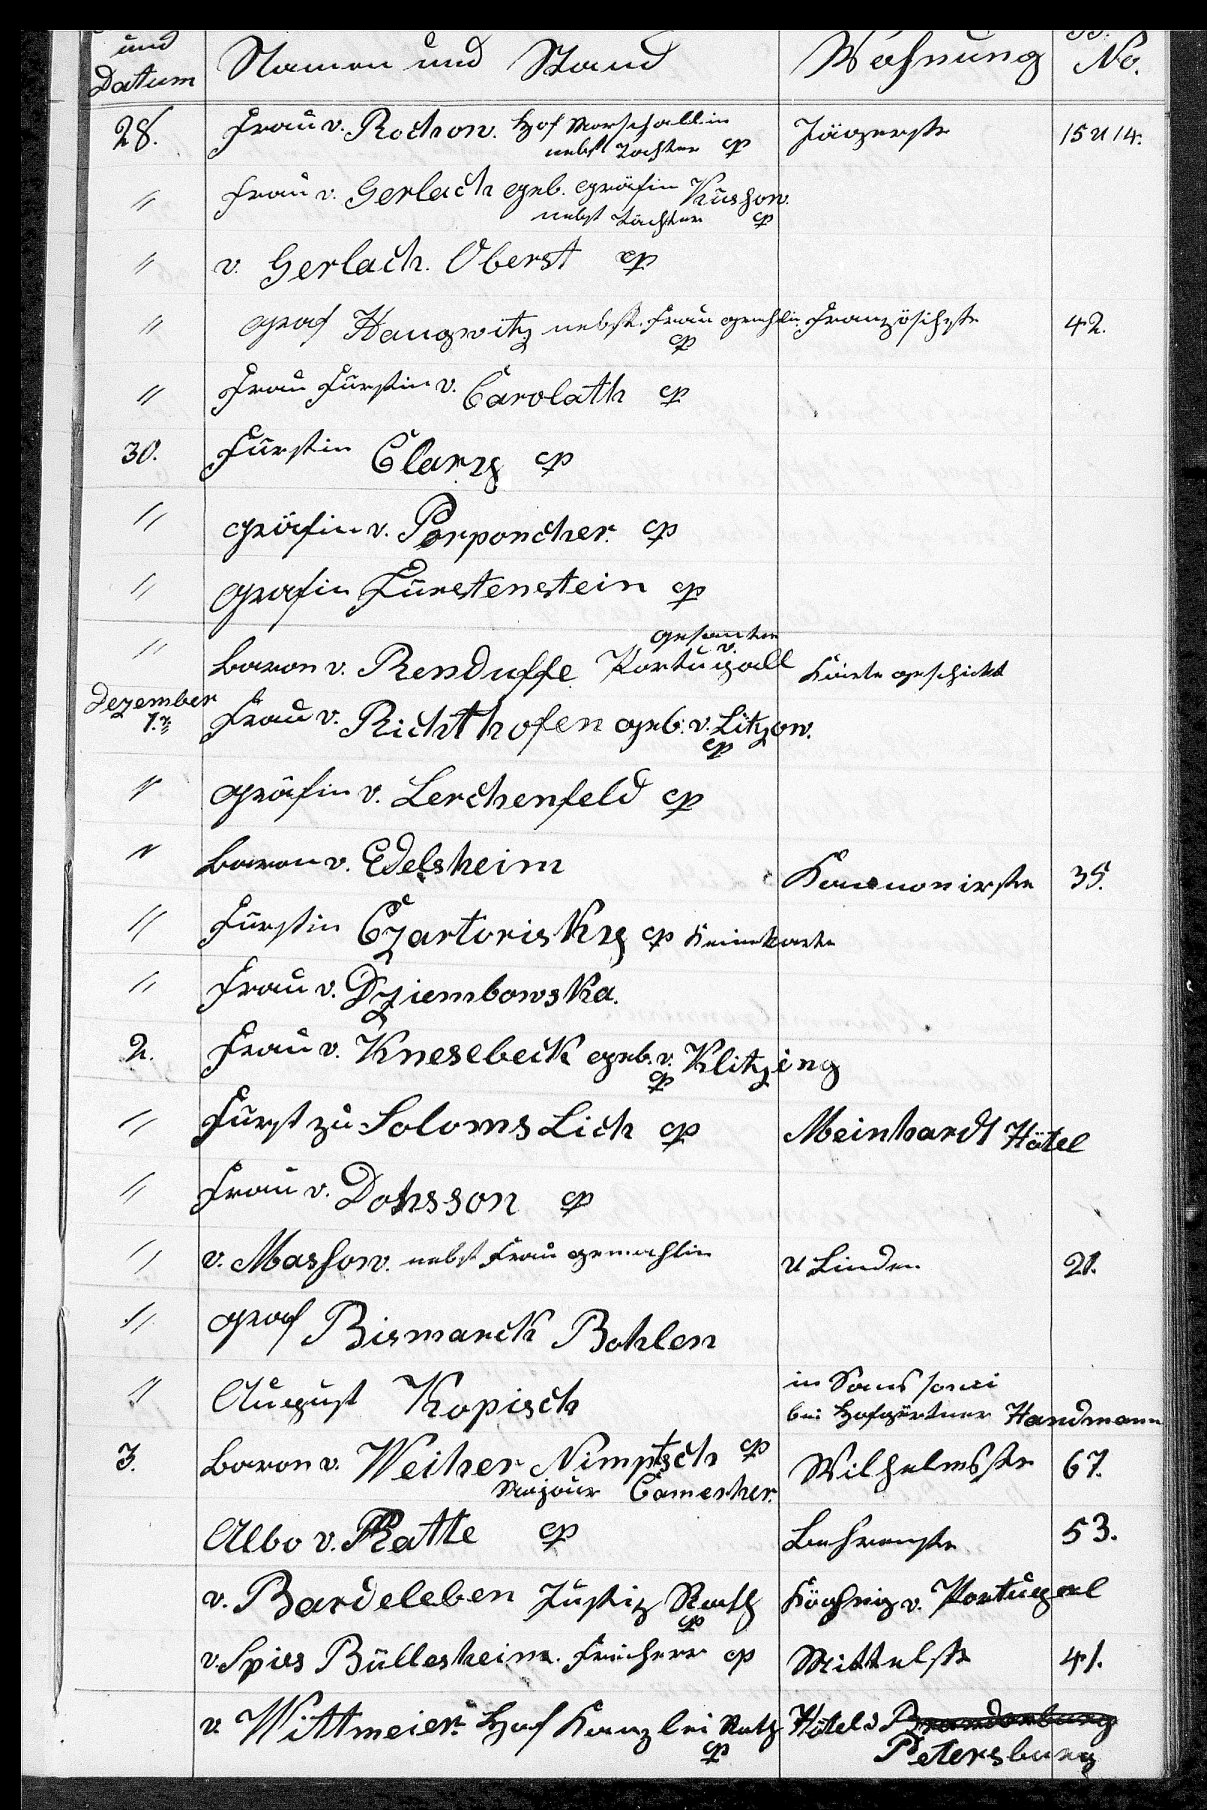 und
Datum Namen und Stand Wohnung No.
28. Frau v. Rochow. Hof Marschallin Jägerstr 15 u 14.
nebst Tochter cp
" Frau v. Gerlach geb. Gräfin Küssow.
nebst Töchter cp
" v. Gerlach. Oberst cp
" Graf Haugwitz nebst Frau gemhlin Französichstr 42.
cp
" Frau Fürstin v. Carolath cp
30. Fürstin Clary cp
" Gräfin v. Perponcher. cp
" Grafin Fürstenstein cp
Gesanter
" Baron v. Renduffe v. Portugall Karte geschikt
Dezember
1. Frau v. Richthofen geb. v. Litzow.
cp
" Gräfin v. Lerchenfeld cp
" Baron v. Edelsheim Kannonirstr 35.
" Fürstin Czartorisky cp keine Karte
" Frau v. Dziembowska.
2. Frau v. Knesebeck geb. v. Klitzing
cp
" Fürst zu Soloms Lich cp Meinhardt Hötel
" Frau v. Dohsson cp
" v. Massow. nebst Frau gemahlin U Linden 21.
" Graf Bismarck Bohlen
" August Kopisch in Sanssouci
bei Hofgärtner Handmann
3. Baron v. Weiher Nimptsch cp Wilhelmsstr 67.
Majour Camerher.
Albo v. Katte cp Behrenstr 53.
v. Bardeleben Justiz Rath König v. Portugal
cp
v. Spies Büllesheim. Freiherr cp Mittelstr 41.
v. Wittmeier. Hof Kanzlei Rath Hötel d Brandenburg
cp Petersburg